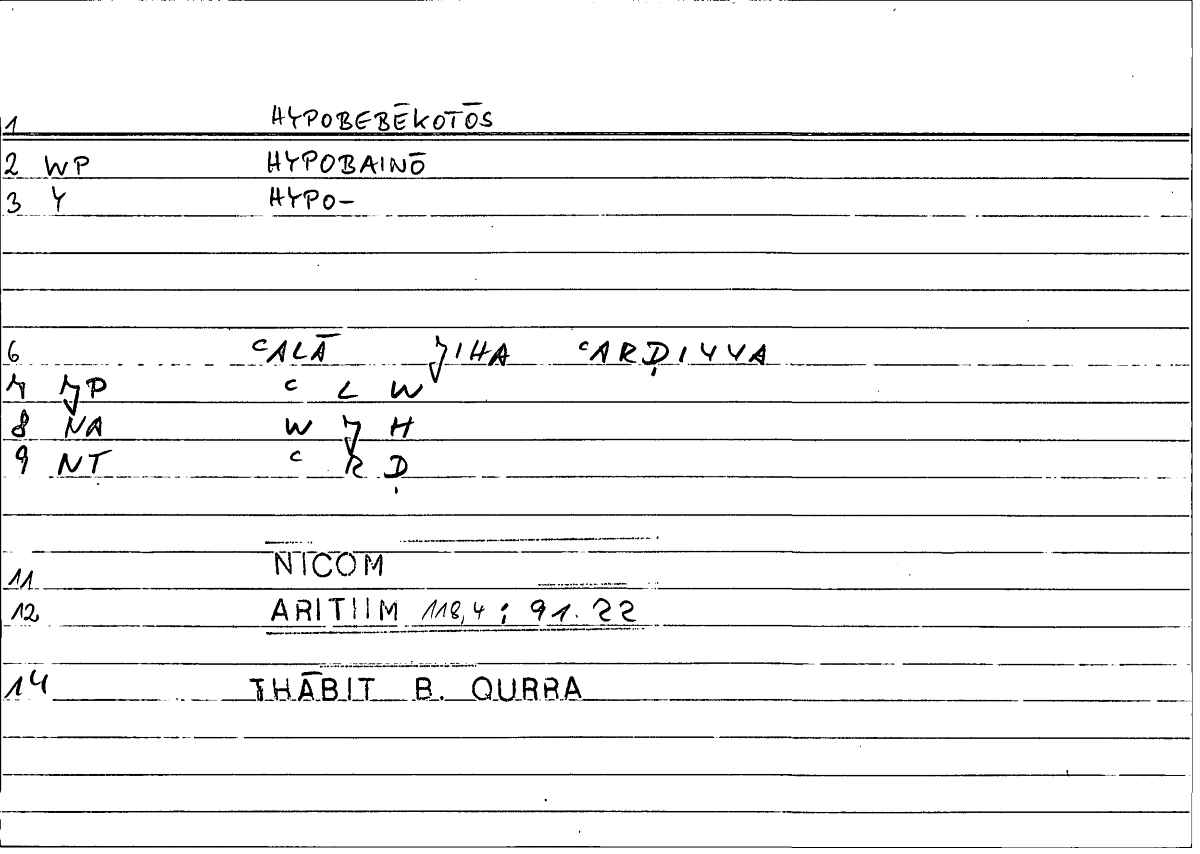 1 HYPOBEBĒKOTŌS
2 WP HYPOBAINŌ
3 Y HYPO-
6 ʿALĀ JIHA ʿARḌIYYA
7 JP ʿ L W
8 NA W J H
9 NT ʿ R Ḍ
11 NICOM
12 ARITHM 118,4 ; 91.22
14 THĀBIT B. QURRA